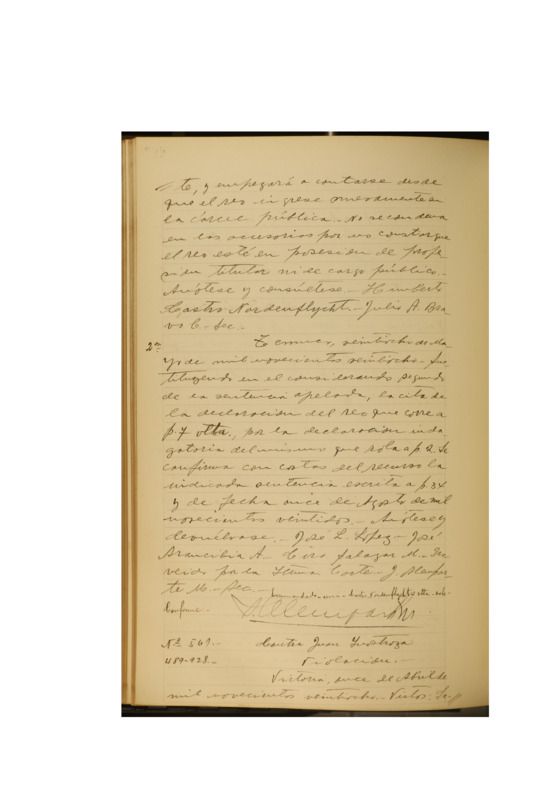 te, y empezará a contarse desde
que el reo ingrese nuevamente a
la cárcel pública.- No se condena
en las accesorias por no constar que
el reo esté en posesión de profe
sión titular ni de cargo público.-
Anótese y consúltese.- Humberto
Castro Nordenflycht.- Julio A. Bra
vo C.- Sec.-
2ª
Temuco, veintiocho de Ma
yo de mil novecientos veintiocho.- Sus
tituyendo en el considerando segundo
de la sentencia apelada, la cita de
la declaración del reo que corre a
f. 7 vlta., por la declaración inda
gatoria del mismo que rola a f. 2. Se
confirma con costas del recurso la
indicada sentencia escrita a f. 34
y de fecha once de Agosto de mil
novecientos veintidos.- Anótese y
devuélvase.- José L. López.- José
Arancibia A.- Ciro Salazar M.- Pro
veido por la Iltma. Corte.- J. Monfor
te M.- Sec.-
Conforme.-
Nº 569.- Contra Juan Inostroza
489-928.- Violación.-
Victoria, once de Abril de
mil novecientos veintiocho.- Vistos: Se